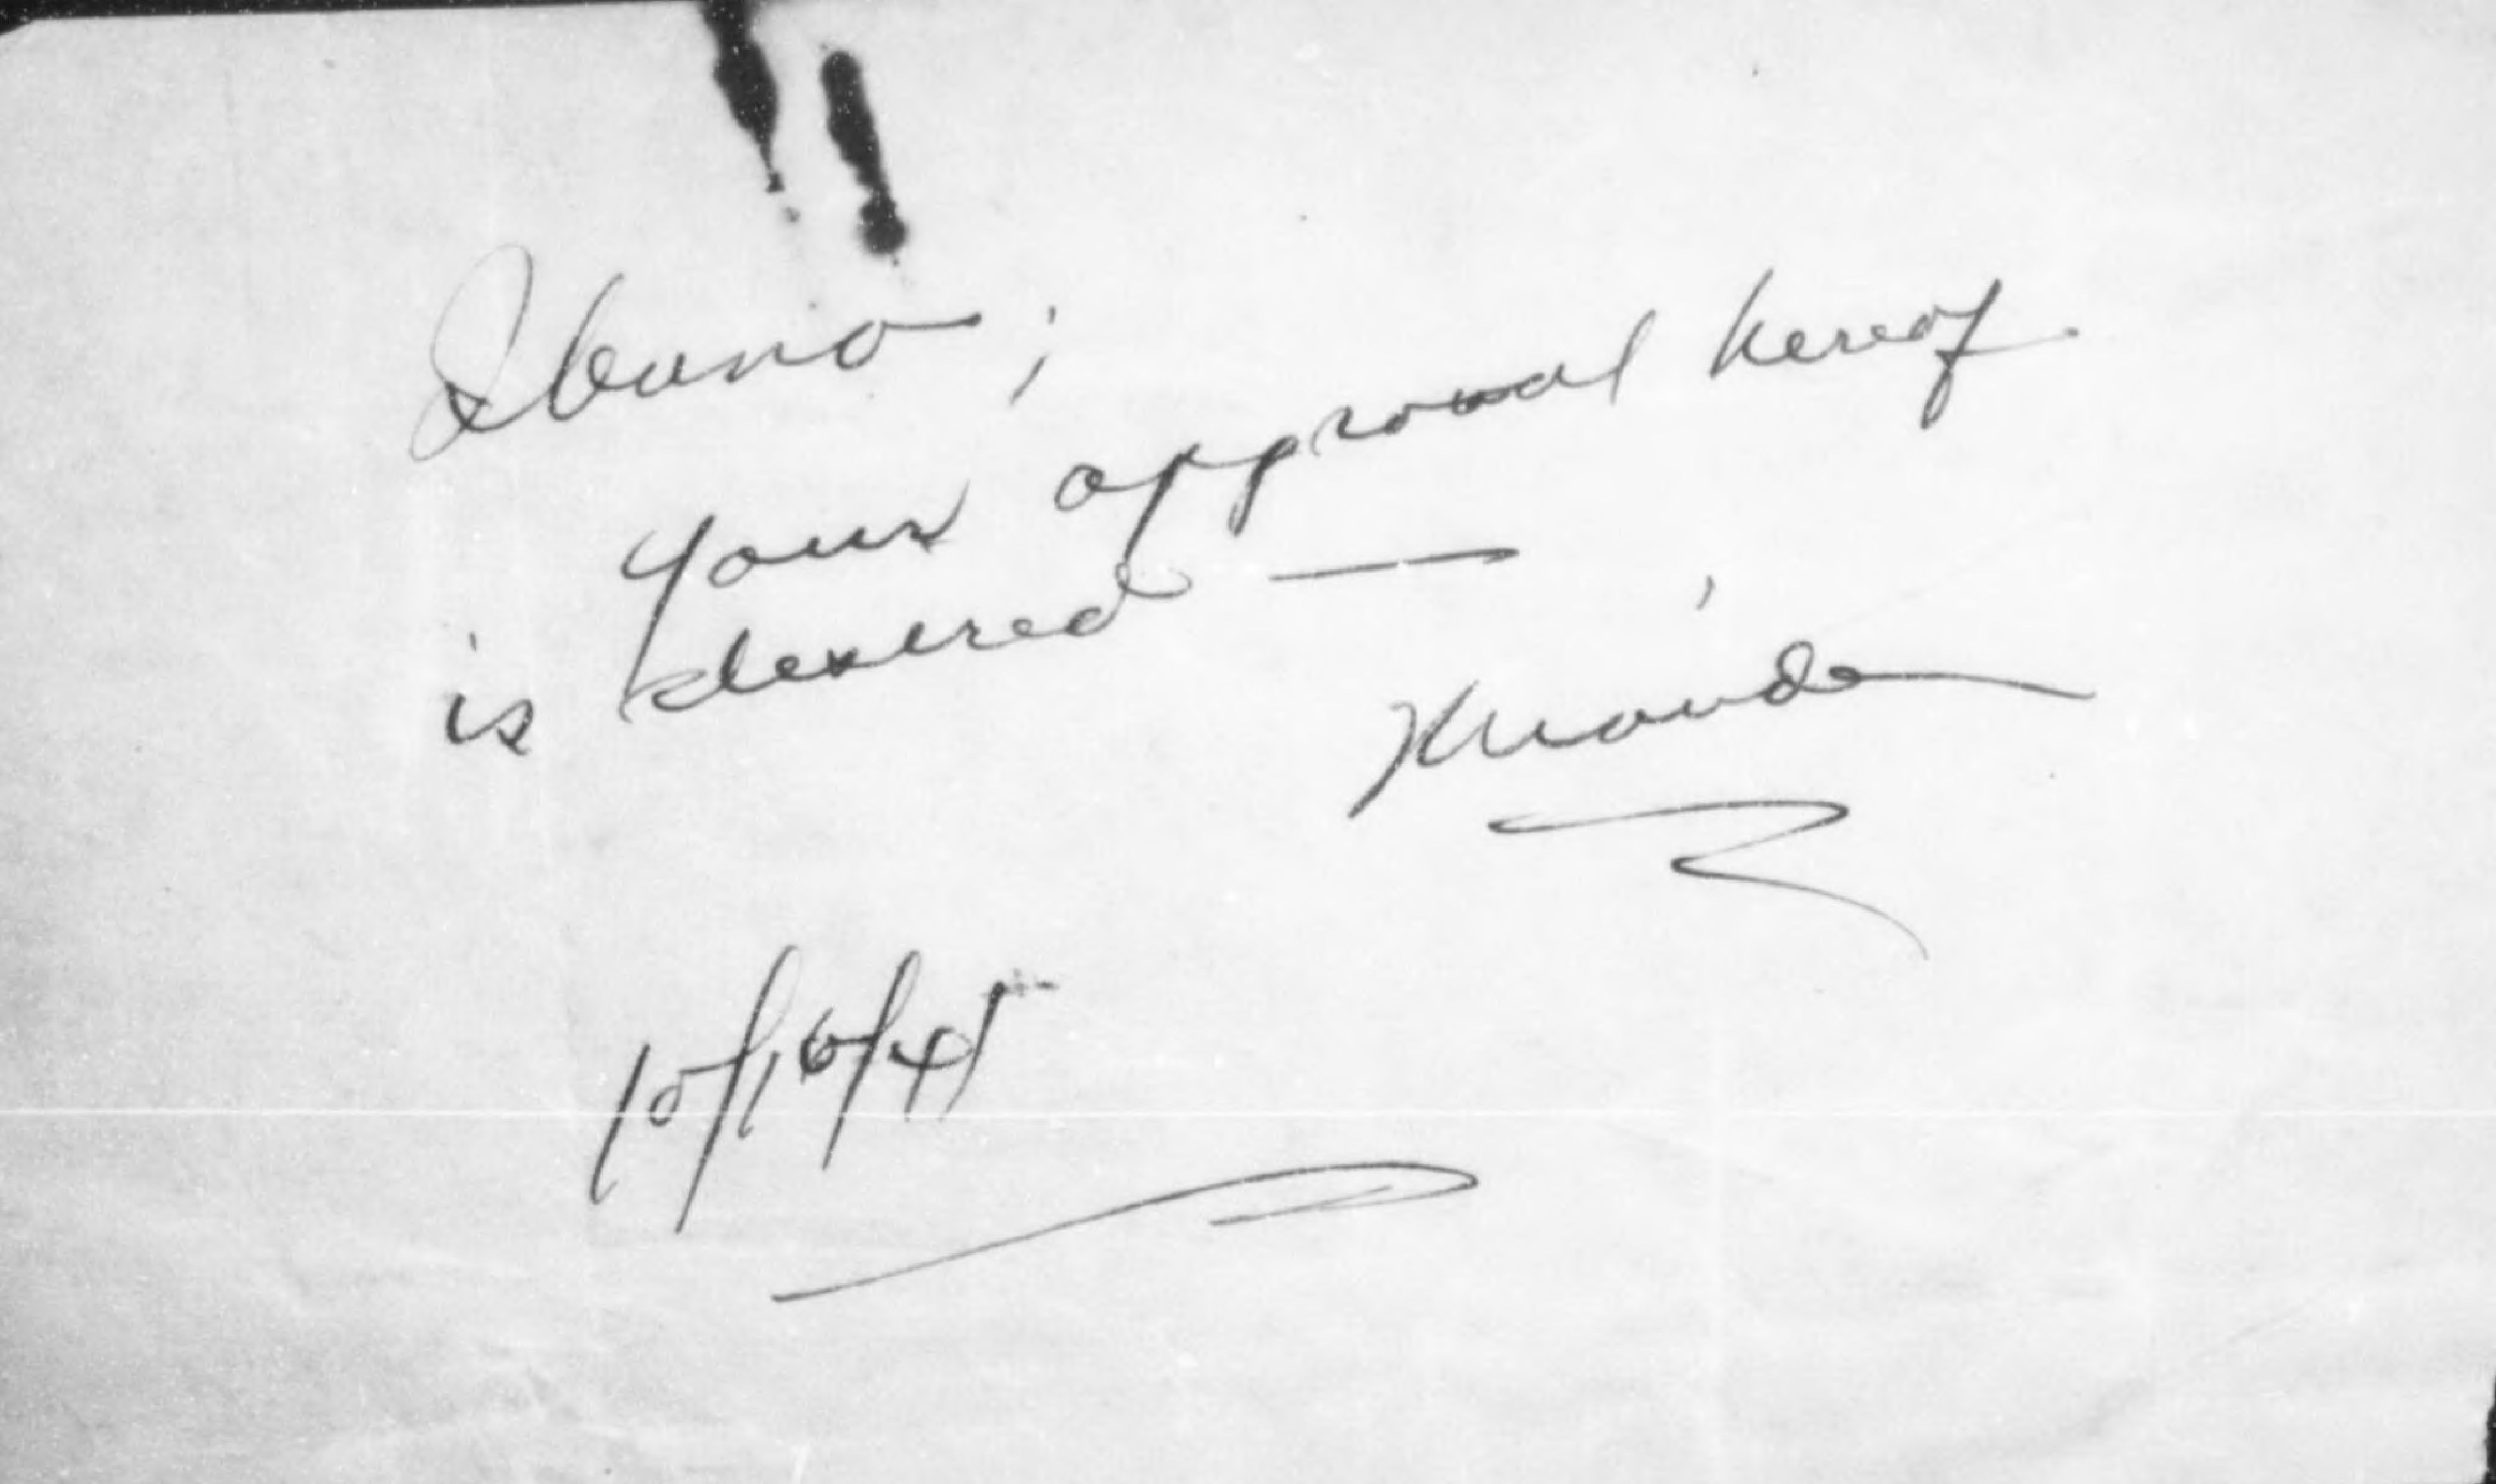 Ibuno;
Your approval hereof
is desired —
10/16/45